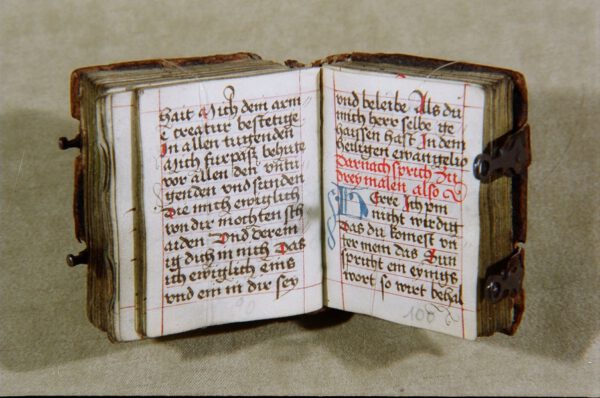 hait Mich dem arm
E creatur bestetige
In allen tugenden
Mich furpas behute
vor allen den untu
genden vnd sunden
Die mich ewiglich
von dir mochten sch
aiden Vnd verein
ig dich in mich Das
ich ewiglich eins
vnd ein in dir sey
vnd beleibe Als du
mich herr selbe ge
haissen hast In dem
heiligen ewangelio
Darnach sprich zu
drey malen also
Herre Ich pin
nicht wirdig
Das du komest vn
ter mein das Sun
spricht ein ewings
wort so wirt behal
100